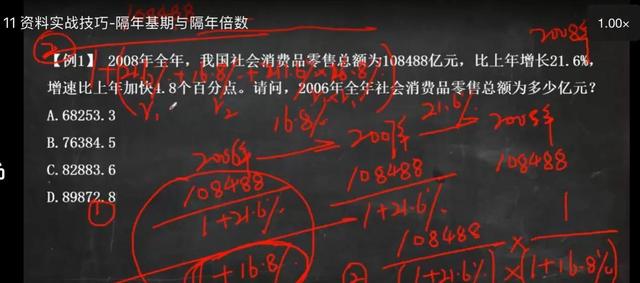 11 资料实战技巧-隔年基期与隔年倍数
1.00×
108488
2008年
②
【例1】 2008年全年，我国社会消费品零售总额为108488亿元，比上年增长21.6%，
增速比上年加快4.8个百分点。请问，2006年全年社会消费品零售总额为多少亿元？
r₁
r₂
A. 68253.3
B. 76384.5
C. 82883.6
D. 89872.8
①
16.8%
21.6%
2006年
2007年
108488
108488
1+21.6%
1+16.8%
108488
1+21.6%
②
108488
(1+21.6%)
×
1
×(1+16.8%)